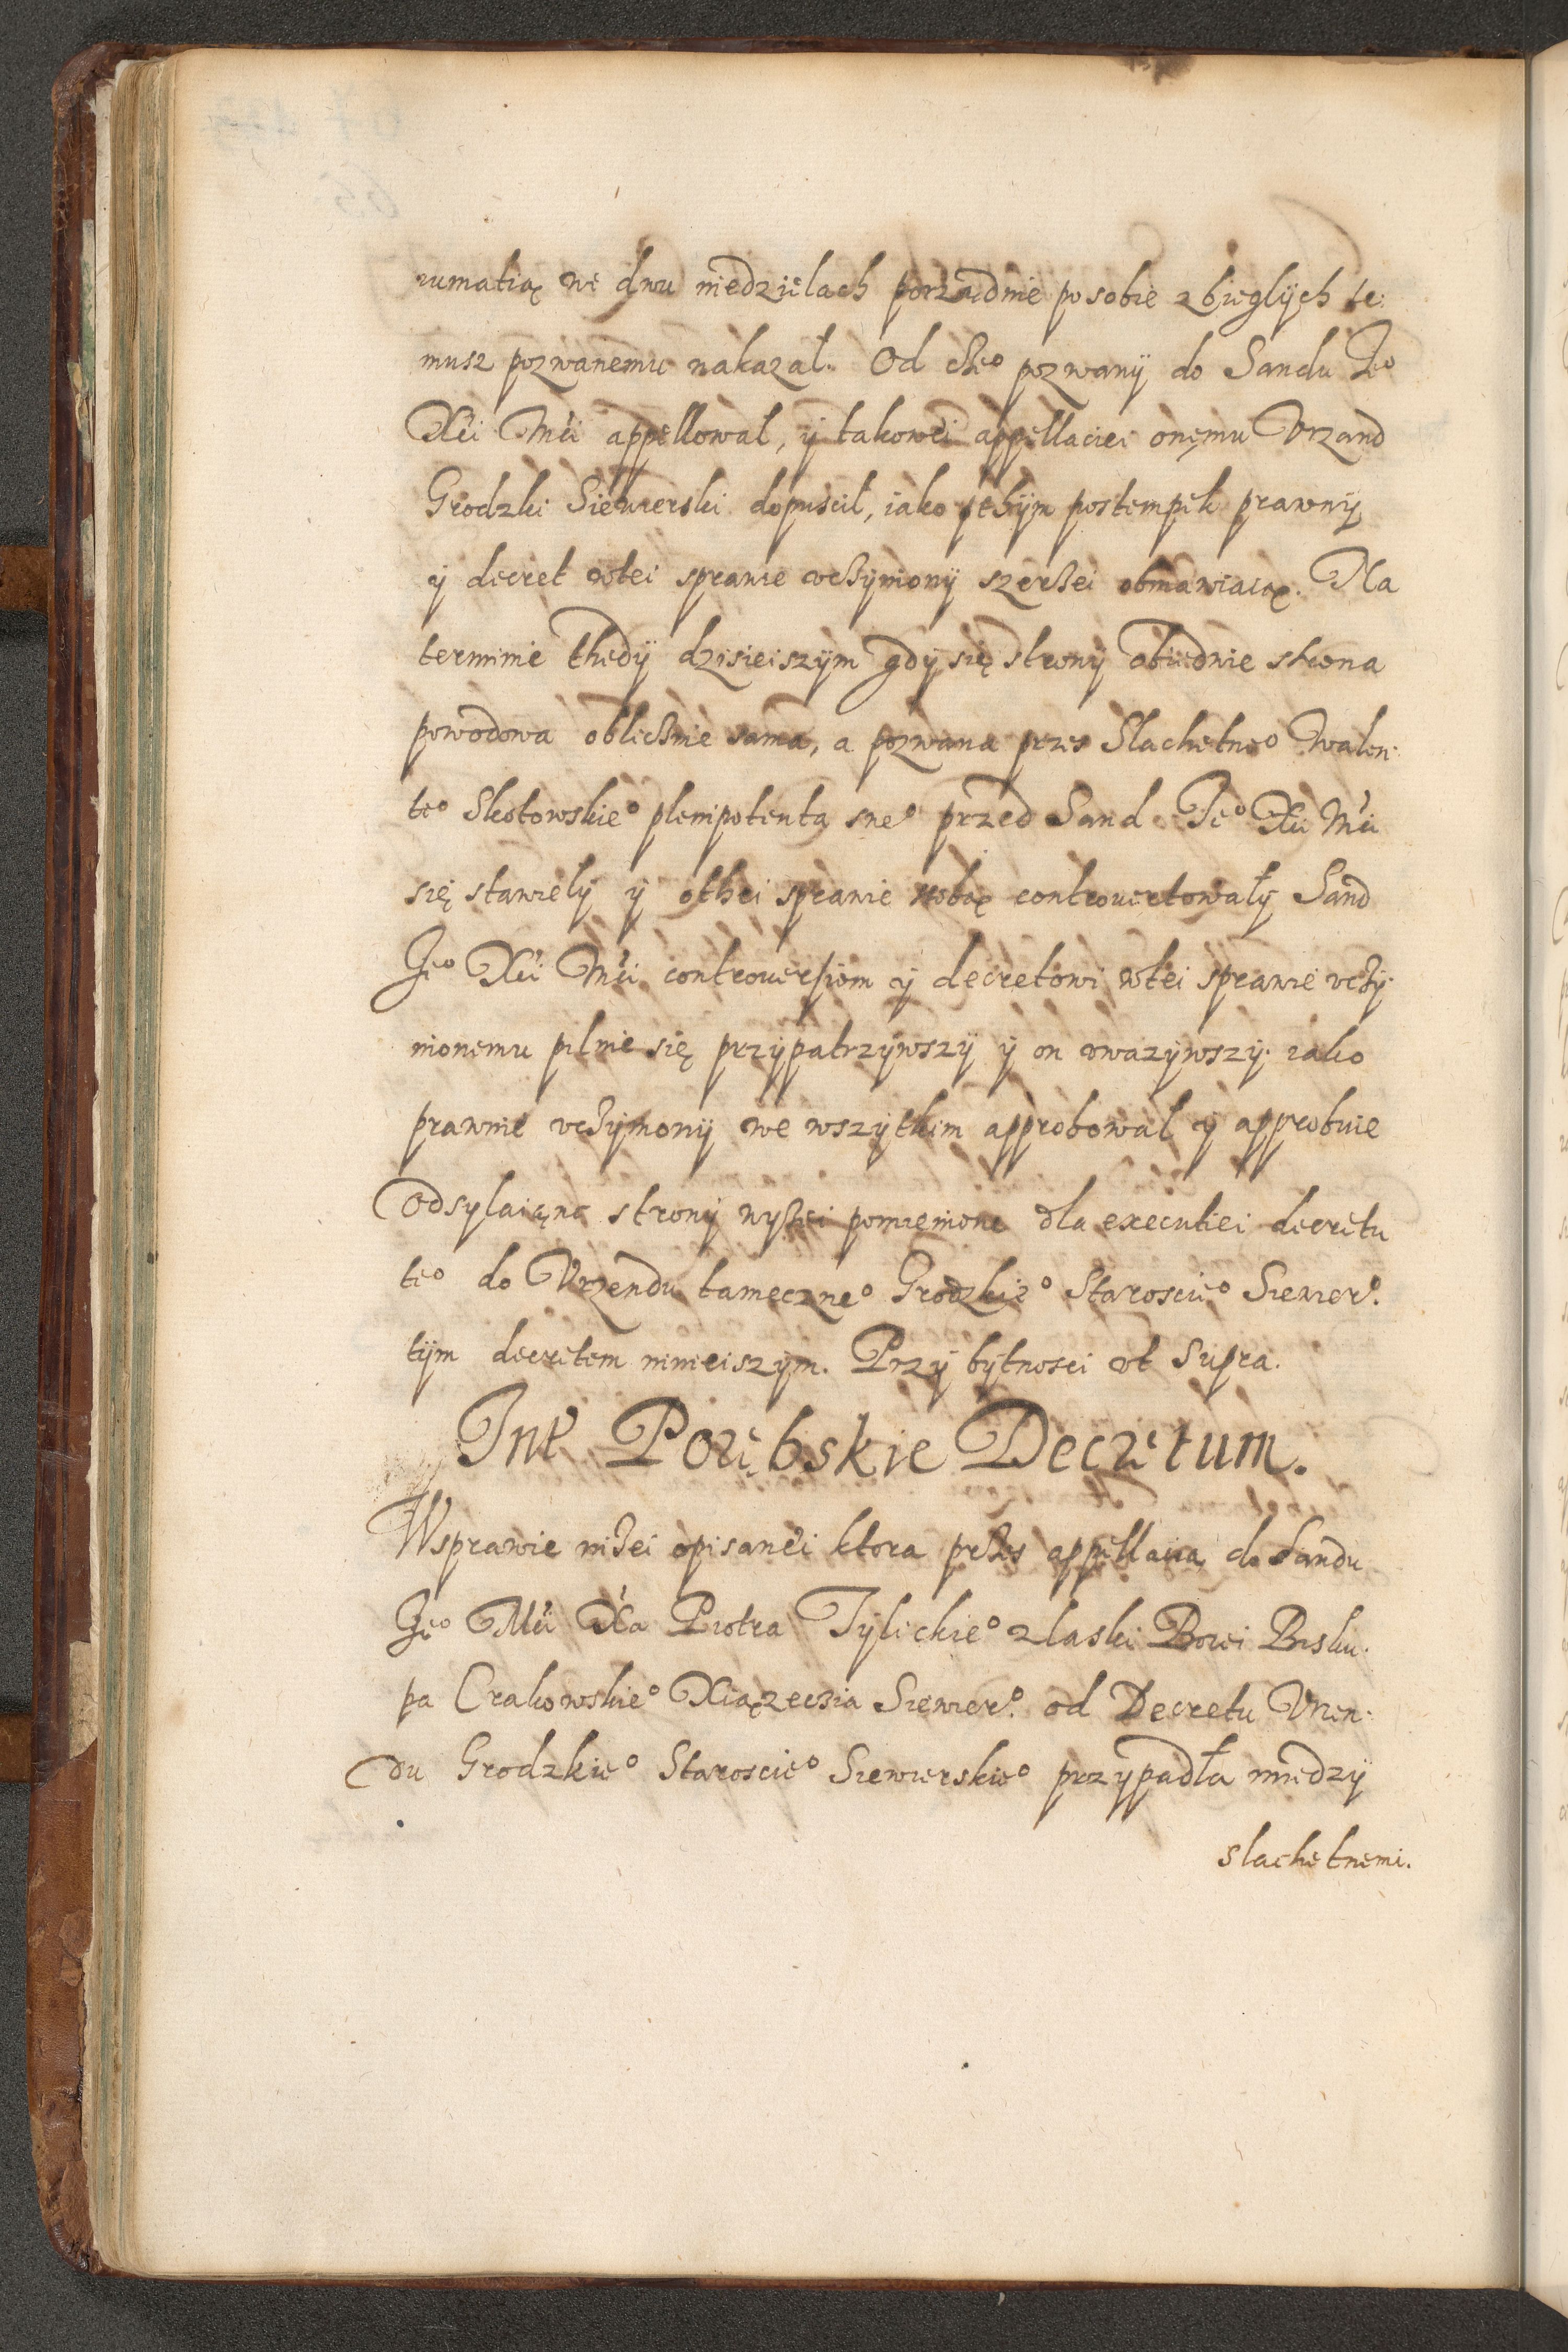 iumatią we dwu niedzielach porzadnie po sobie zbieglÿch te:
musz pozwanemu nakazał. Od cze⁰ pozwanÿ do Sandu Je⁰
Xći Mći appellował, ÿ takowei appellaciei onęmu Vrzand
Grodzki Siewierski dopuścił, iako o thÿm postempek prawnÿ
ÿ decret wtei sprawie vczÿnionÿ szerzei obmawiaią. Na
terminie thedÿ dzisieiszÿm gdÿ się stronÿ obiedwie strona
powodowa obliecznie sama, a pozwana przes Slachetne⁰ Walen:
te⁰ Skotowskie⁰ plenipotenta swe⁰ przed Sand Je⁰ Xći Mći
się stawielÿ ÿ othei sprawie zsobą controuertowałÿ Sand
Je⁰ Xći Mći controuersiom ÿ decretowi wtei sprawie vczÿ:
nionemu pilnie się przÿpatrzÿwszÿ ÿ on vwazÿwszÿ iako
prawnie vczÿnionÿ we wszÿtkim approbował ÿ approbuie
Odsylaiąnc stronÿ wÿszei pomienione dla executiei decretu
te⁰ do Vrzendu tameczne⁰ Grodzkie⁰ Staroscie⁰ Siewier⁰.
tÿm decretem ninieiszÿm. Przÿ bÿtnosci vt supra.
Int Porębskie Decretum.
Wsprawie niżei opisanei ktora przes appellacią do Sandu
Je⁰ Mći Xa Piotra Tÿlickie⁰ z laski Bozei Bisku:
pa Crakowskie⁰ Xiążeczia Siewier⁰. od Decretu Vrzen:
du Grodzkie⁰ Staroscie⁰ Siewierskie⁰ przÿpadła miedzÿ
slachetnemi.